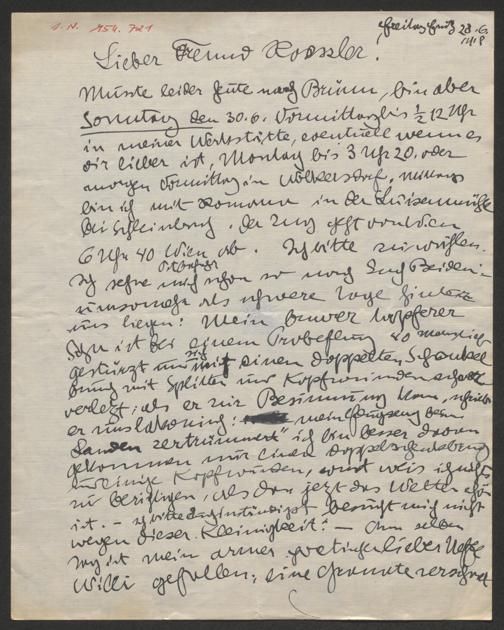 I. N. 154.721
Freitag früh 28.6.
1918
Lieber Freund Roessler!
Musste leider heute nach Brünn, bin aber
Sonntag den 30.6. Vormittag bis ½ 12 Uhr
in meiner Werkstätte, eventuell wenn es
dir lieber ist, Montag bis 3 Uhr 20. oder
morgen Vormittag in Wolkersdorf, mittags
bin ich mit Romana in der Luisenmühle
bei Schleinbach. der Zug geht von Wien
6 Uhr 40 Wien ab. Ich bitte zu wählen.
Ich sehne mich schon so nach Euch Beiden:
umsomehr als schwere Tage hinter
uns liegen! Mein braver tapferer
Sohn ist bei einem Probeflug 40
gestürzt und einen doppelten Schenkel
mit Splitter und Kopfwunden
verletzt; als er zur Besinnung kam,
er uns mein Flugzeug beim
Landen zertrümmert" ich bin besser davon
gekommen nur einen doppelschenkelbruch
und einige Kopfwunden, sonst weis ich nichts
zu berichten, als das jetzt das Wetter schön
ist. – ich bitte Euch inständigst besucht mich nicht
wegen dieser Kleinigkeit! – Am selben
Tag ist mein armer lieber Neffe
Willi gefallen; eine Granate